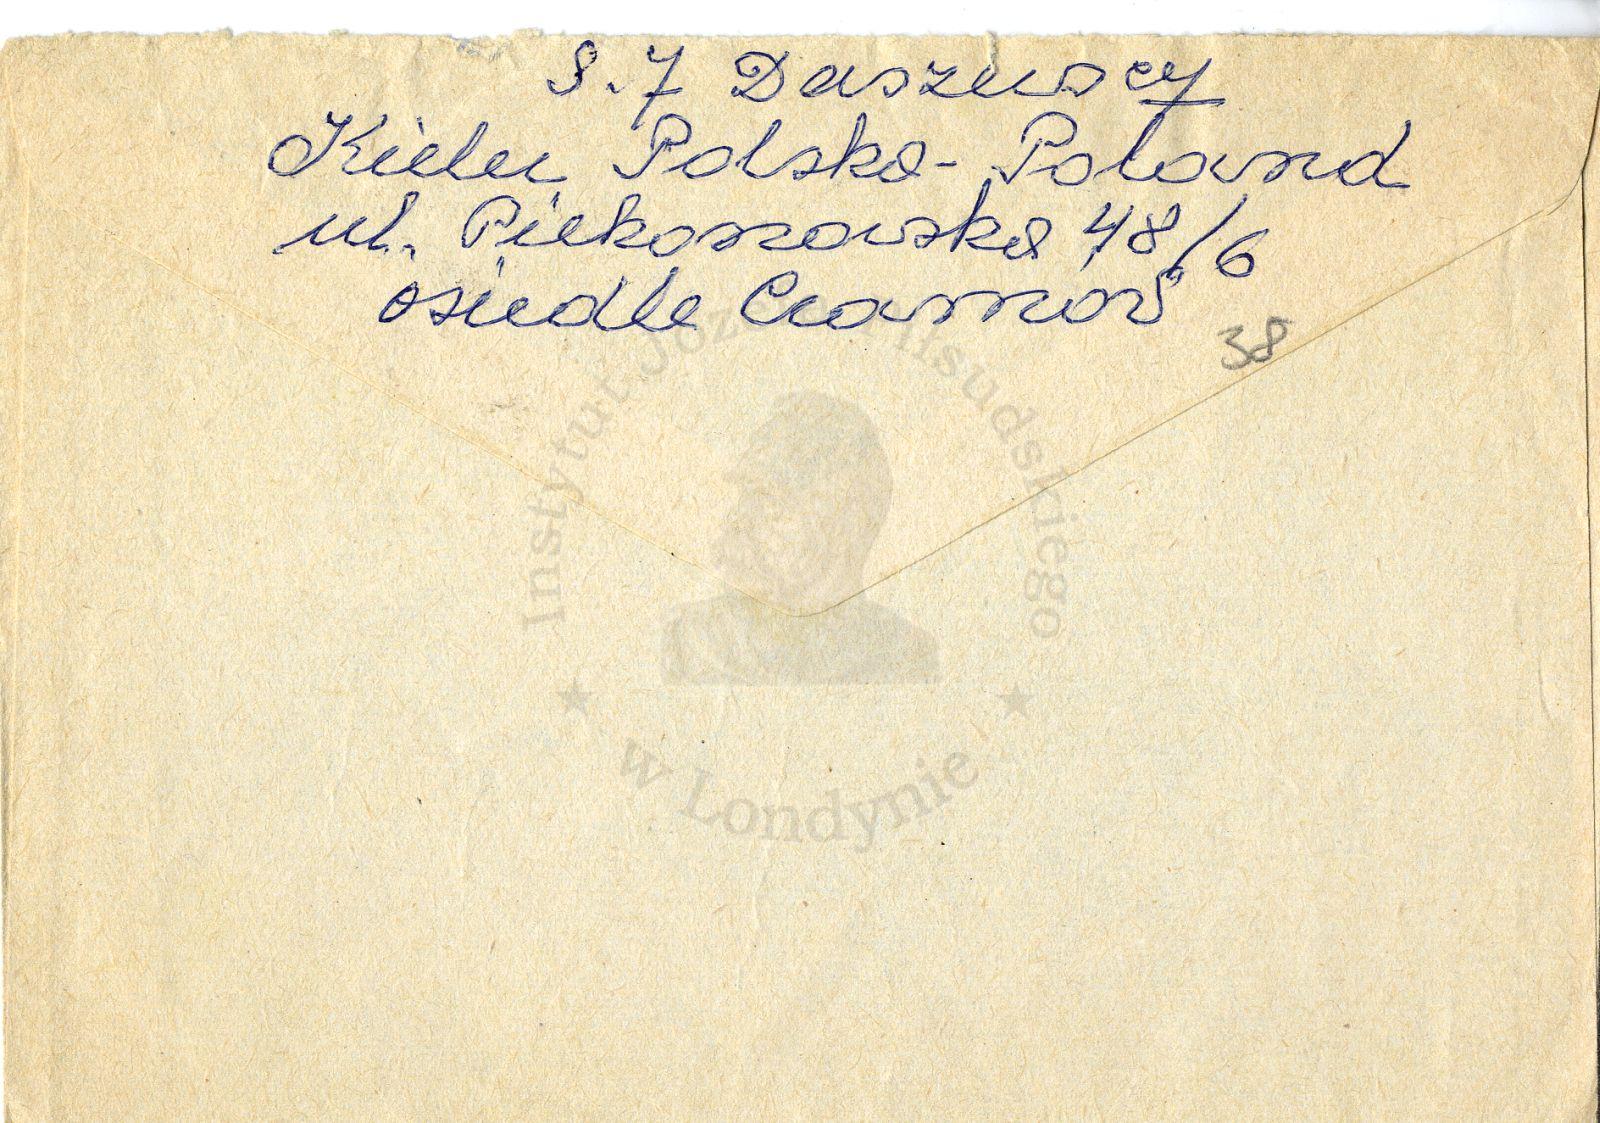 S. J Daszuscy
Kielce Polska - Poland
ul. Piekoszowska 48/6
osiedle Czarnów
38
Instytut Józefa Piłsudskiego
w Londynie